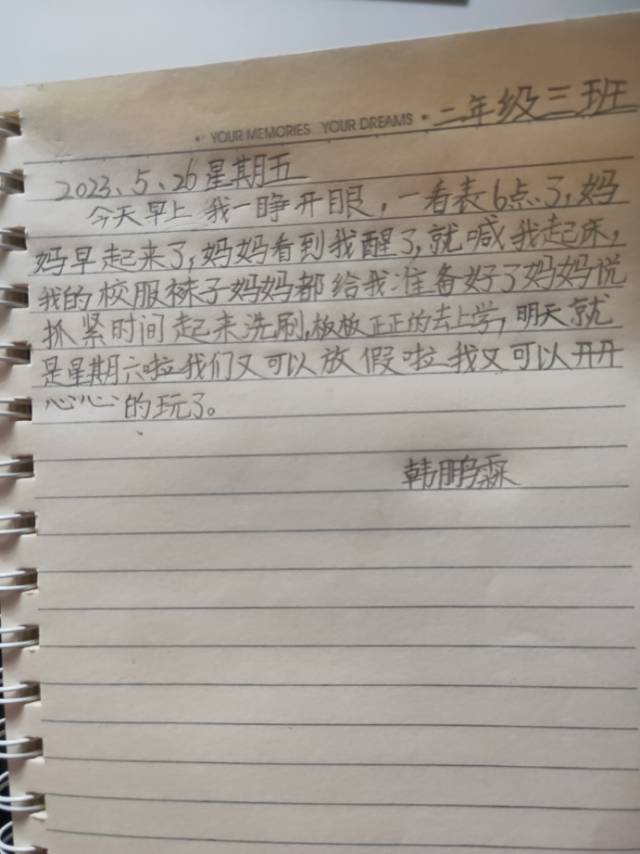 YOUR MEMORIES YOUR DREAMS 二年级三班
2023、5、26 星期五
今天早上我一睁开眼，一看表6点了，妈
妈早起来了，妈妈看到我醒了，就喊我起床，
我的校服袜子妈妈都给我准备好了妈妈说
抓紧时间起来洗刷，板板正正的去上学，明天就
是星期六啦我们又可以放假啦我又可以开开
心心的玩了。
韩鹏霖